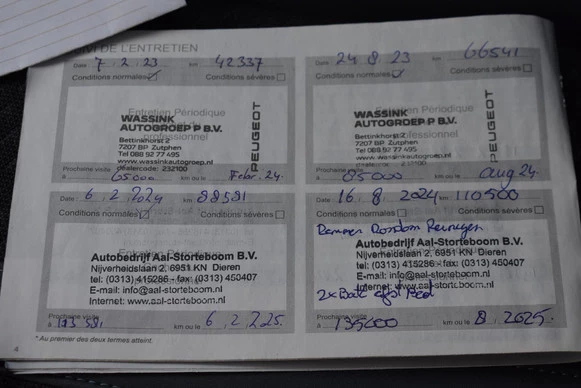 DE L'ENTRETIEN
Date: 7.2.23 km 42337
Conditions normales Conditions sévères
Entretien Périodique
WASSINK
AUTOGROEP P B.V.
Bettinkhorst 2
7207 BP Zutphen
Tel 088 92 77 495
www.wassinkautogroep.nl
dealercode: 232100
PEUGEOT
Prochaine visite
à 65000 km ou le Febr. 24.
Date: 24.8.23 km 66541
Conditions normales Conditions sévères
Entretien Périodique
WASSINK
AUTOGROEP P B.V.
Bettinkhorst 2
7207 BP Zutphen
Tel 088 92 77 495
www.wassinkautogroep.nl
PEUGEOT
Prochaine visite
à km ou le aug 24.
Date: 6.2.2024 km 88581
Conditions normales Conditions sévères
Autobedrijf Aal-Storteboom B.V.
Nijverheidslaan 2, 6951 KN Dieren
tel: (0313) 415286 - fax: (0313) 450407
E-mail: info@aal-storteboom.nl
Internet: www.aal-storteboom.nl
Prochaine visite
à 113 581 km ou le 6.2.2025.
Date: 16.8.2024 km 110500
Conditions normales Conditions sévères
Remmen Rondom Reinigen
Autobedrijf Aal-Storteboom B.V.
Nijverheidslaan 2, 6951 KN Dieren
tel: (0313) 415286 - fax: (0313) 450407
E-mail: info@aal-storteboom.nl
Internet: www.aal-storteboom.nl
2x
Prochaine visite
à 135000 km ou le 8.2025.
* Au premier des deux termes atteint.
4